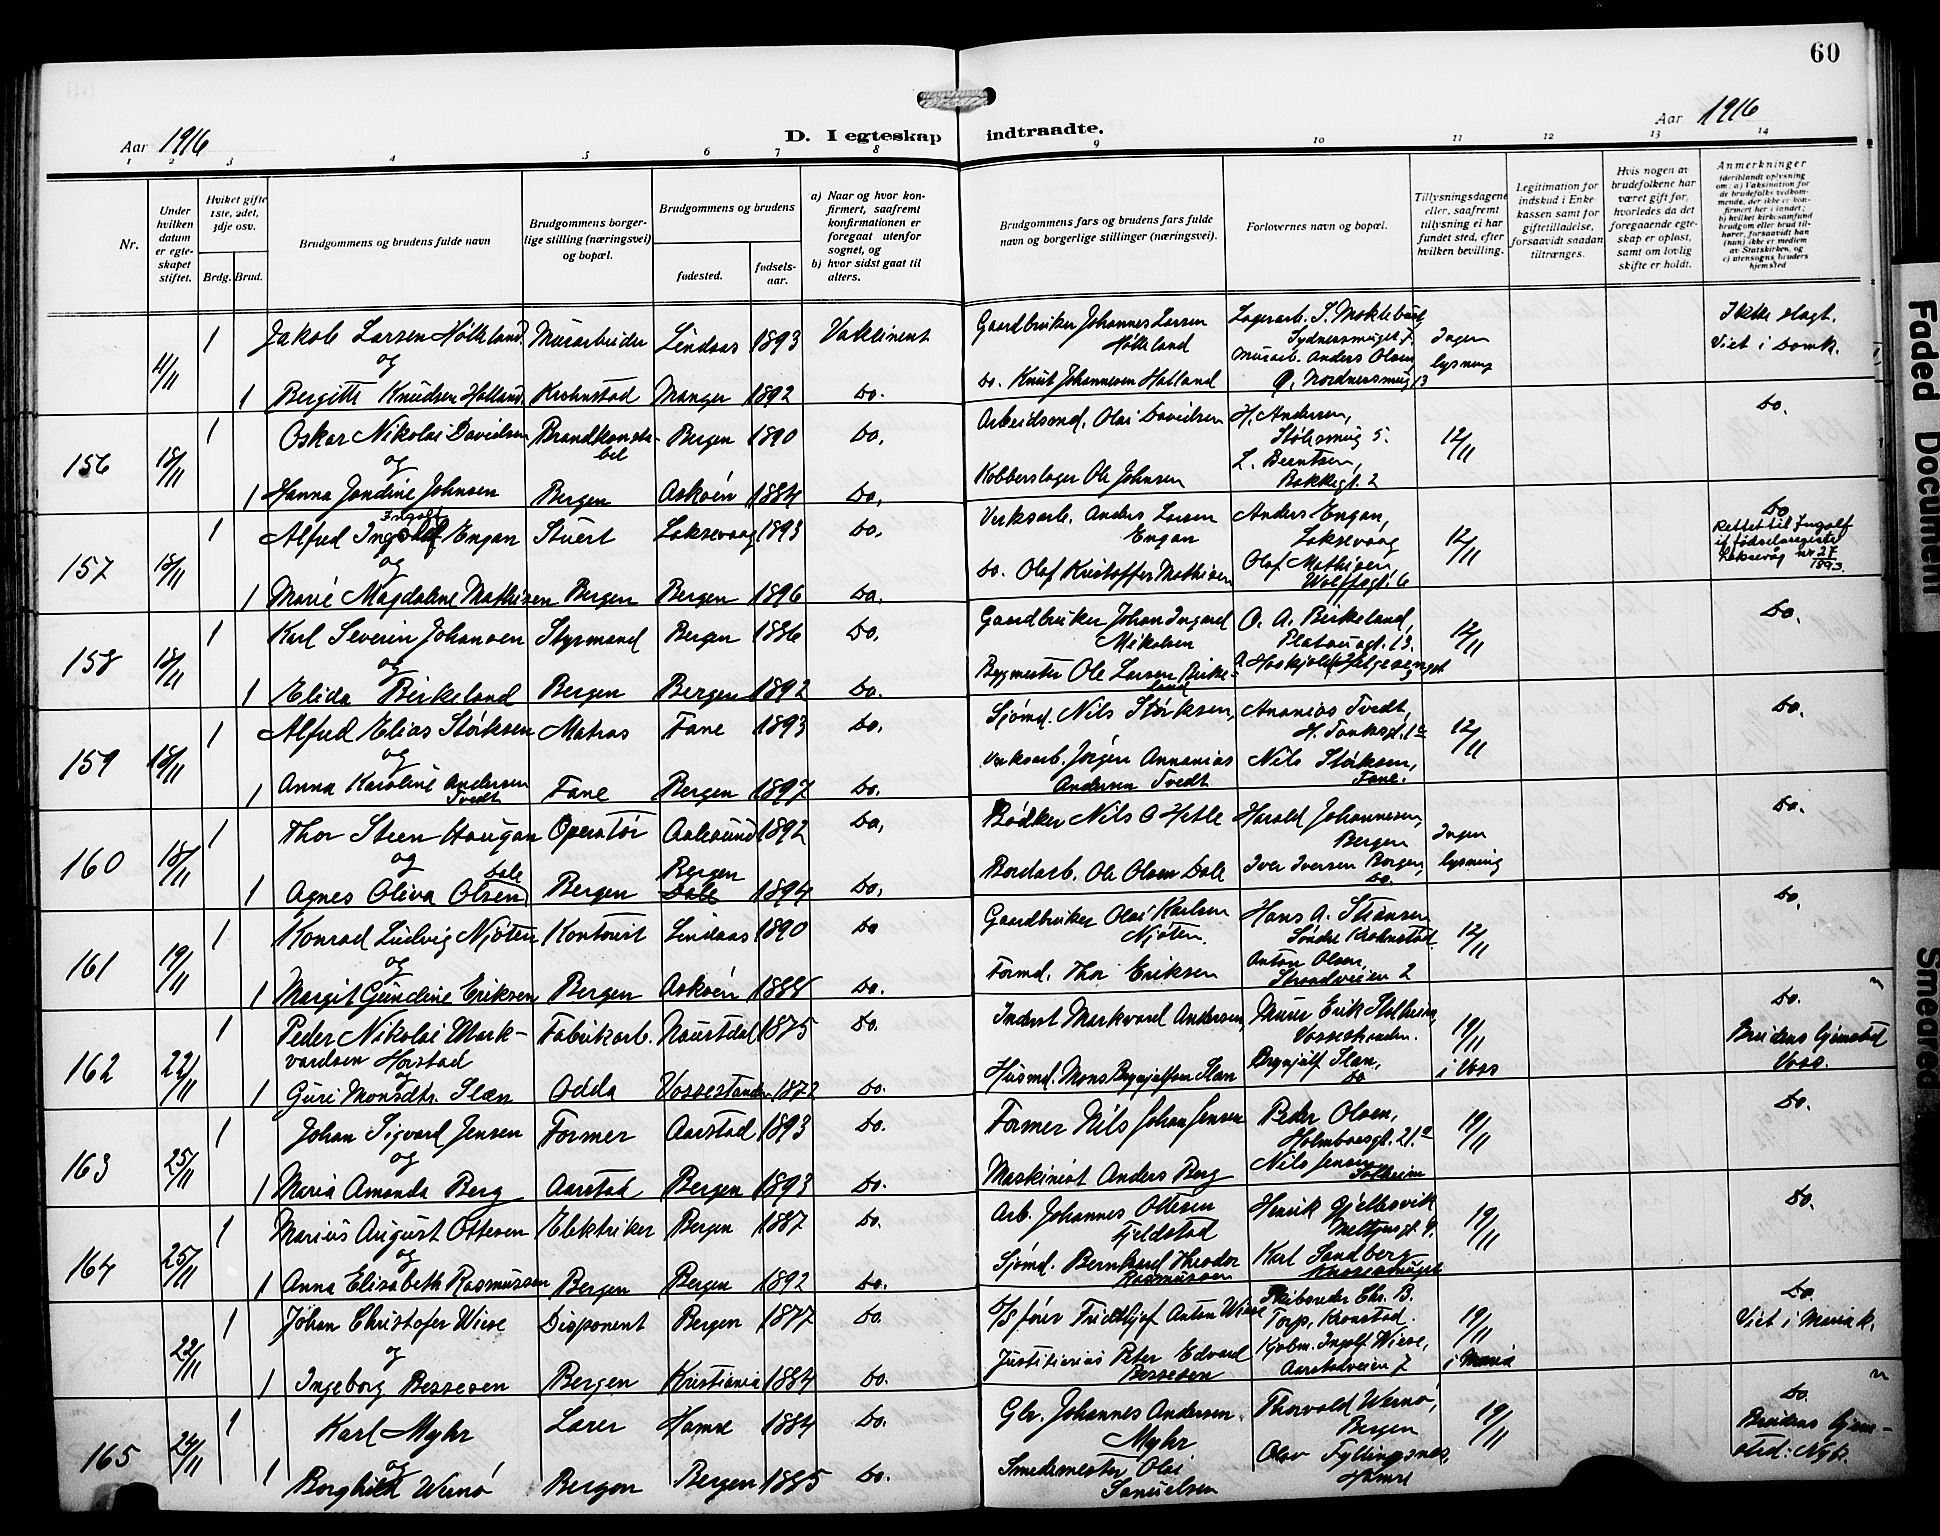 60
Aar 1916
D. I egteskap indtraadte.
Aar 1916
1 2 3 4 5 6 7 8 9 10 11 12 13 14
Nr.
Under hvilken datum er egteskapet stiftet.
Hvilket gifte 1ste, 2det, 3dje osv.
Brdg. Brud.
Brudgommens og brudens fulde navn
Brudgommens borgerlige stilling (næringsvei) og bopæl.
Brudgommens og brudens
fødested. fødselsaar.
a) Naar og hvor konfirmert, saafremt konfirmationen er foregaat utenfor sognet, og
b) hvor sidst gaat til alters.
Brudgommens fars og brudens fars fulde navn og borgerlige stillinger (næringsvei).
Forlovernes navn og bopæl.
Tillysningsdagene eller, saafremt tillysning ei har fundet sted, efter hvilken bevilling.
Legitimation for indskud i Enkekassen samt for giftetilladelse, forsaavidt saadan tiltrænges.
Hvis nogen av brudefolkene har været gift før, hvorledes da det foregaaende egteskap er opløst, samt om lovlig skifte er holdt.
Anmerkninger (deriblandt oplysning om: a) Vaksination for de brudefolks vedkommende, der ikke er konfirmert her i landet; b) hvilket kirkesamfund brudgom eller brud tilhører, forsaavidt han (hun) ikke er medlem av Statskirken, og c) utensogns bruders hjemsted
11/11 1 Jakob Larsen Hølleland Murarbeider Lindaas 1893 Vaksinert Gaardbruker Johannes Larsen Hølleland Lagerarb. S. Moklebust Sydnersmuget 7 Ingen lysning Ikke slagt. Viet i Domk.
og
1 Bergitte Knudsen Hølland Krohnstad Manger 1892 Do. Do. Knut Johannesen Hølland Murarb. Anders Olsen Ø. Nordnersmug 13
156 18/11 1 Oskar Nikolai Davidsen Brandkonstabel Bergen 1890 Do. Arbeidsmd. Olai Davidsen H. Andersen, Stølesmug 5. 12/11 Do.
og
1 Hanna Jondine Johnsen Bergen Askøen 1884 Do. Kobberslager Ole Johnsen L. Berntsen, Bakkegt. 2
157 18/11 1 Alfred Ingolf Engan Stuert Laksevaag 1893 Do. Verksarb. Anders Larsen Engan Anders Engan, Laksevaag 12/11 Do Rettet til Ingolf if. fødselsregister Laksevåg nr 27 1893.
og
1 Marie Magdaline Mathisen Bergen Bergen 1896 Do. Do. Olaf Kristoffer Mathisen Olaf Mathisen Wolffsgt. 6
158 18/11 1 Karl Severin Johansen Styrmand Bergen 1886 Do. Gaardbruker Johan Ingard Mikalsen O. A. Birkeland, Platousgt. 13. 12/11 Do.
og
1 Elida Birkeland Bergen Bergen 1892 Do. Bygmester Ole Larsen Birkeland
159 18/11 1 Alfred Elias Størksen Matros Fane 1893 Do. Sjømd. Nils Størksen, Ananias Tvedt, H. Tanksgt. 1a 12/11 Do.
og
1 Anna Karoline Andersen Tvedt Fane Bergen 1897 Do. Verksarb. Jørgen Annanias Andersen Tvedt Nils Størksen, Fane.
160 18/11 1 Thor Steen Haugan Operatør Aalesund 1892 Do. Bødker Nils O Hetle Harald Johannesen, Bergen Ingen lysning Do.
og
1 Agnes Oliva Olsen Dale Bergen Bergen Dale 1894 Do. Bordarb. Ole Olsen Dale Iver Iversen Borgen, Do.
161 19/11 1 Konrad Ludvig Njøten Kontorist Lindaas 1890 Do Gaardbruker Olai Karlsen Njøten. Hans A. Søndre Krohnstad 12/11 Do.
og
1 Margit Gundine Eriksen Bergen Askøen 1888 Do. Formd. Thor Eriksen Anton Olsen, Strandveien 2
162 22/11 1 Peder Nikolai Markvardsen Horstad Fabrikarb. Naustdal 1875 Do. Inderst Markvard Andersen, Murer Erik Stalheim, Vossestranden. 19/11 i Voss Do. Brudens hjemsted Voss.
og
1 Guri Monsdtr. Slæn Odda Vossestranden 1872 Do. Husmd. Mons Brynjulfsen Slæn Brynjulf Slæn, Do
163 25/11 1 Johan Sigvard Jensen Former Aarstad 1893 Do. Former Nils Johan Jensen Peder Olsen, Holmboesgt. 21a 19/11 Do.
og
1 Maria Amanda Berg Aarstad Bergen 1893 Do. Maskinist Anders Berg Nils Jensen Solheim
164 25/11 1 Marius August Ottesen Elektriker Bergen 1887 Do. Arb. Johannes Ottesen Fjeldstad Henrik Gjelbsvik Meltzersgt. 9. 19/11 Do.
og
1 Anna Elisabeth Rasmussen Bergen Bergen 1892 Do. Sjømd. Bernhard Theodor Rasmussen Karl Sandberg
22/11 1 Johan Christofer Wiese Disponent Bergen 1877 Do. D/S fører Fridthjof Anton Wiese Skibsreder Chr. B. Torp, Kronstad. 19/11 i Maria Do. Viet i Mariak.
og
1 Ingeborg Bessesen Bergen Kristiania 1884 Do. Justitiarius Peter Edvard Bessesen Kjøbm. Ingolf Wiese, Aarstadveien 7
165 24/11 1 Karl Myhr Lærer Hamre 1884 Do. Gbr. Johannes Andersen Myhr Thorvald Wernø, Bergen 19/11 Do. Brudens hjemsted: Nyk.
og
1 Borghild Wernø Bergen Bergen 1885 Do. Smedemester Olai Samuelsen Olav Fyllingsnes, Hamre
Faded Document
Smeared